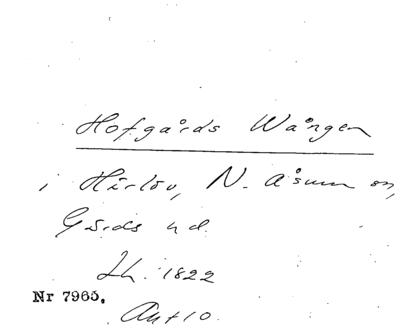 Hofgårds Wången
i Härlöv, N. Åsum sn,
Gärds hd.
Lh. 1822
Nr 7965.
Akt 10.